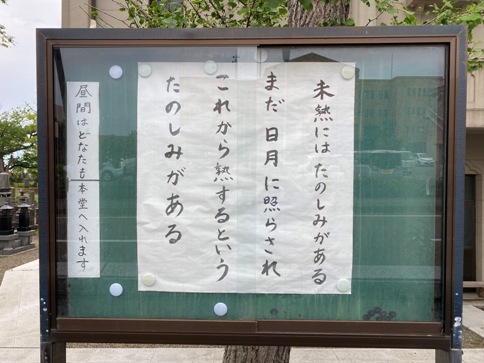 未熟には たのしみがある
まだ 日月に照らされ
これから熟するという
たのしみがある
昼間はどなたも本堂へ入れます